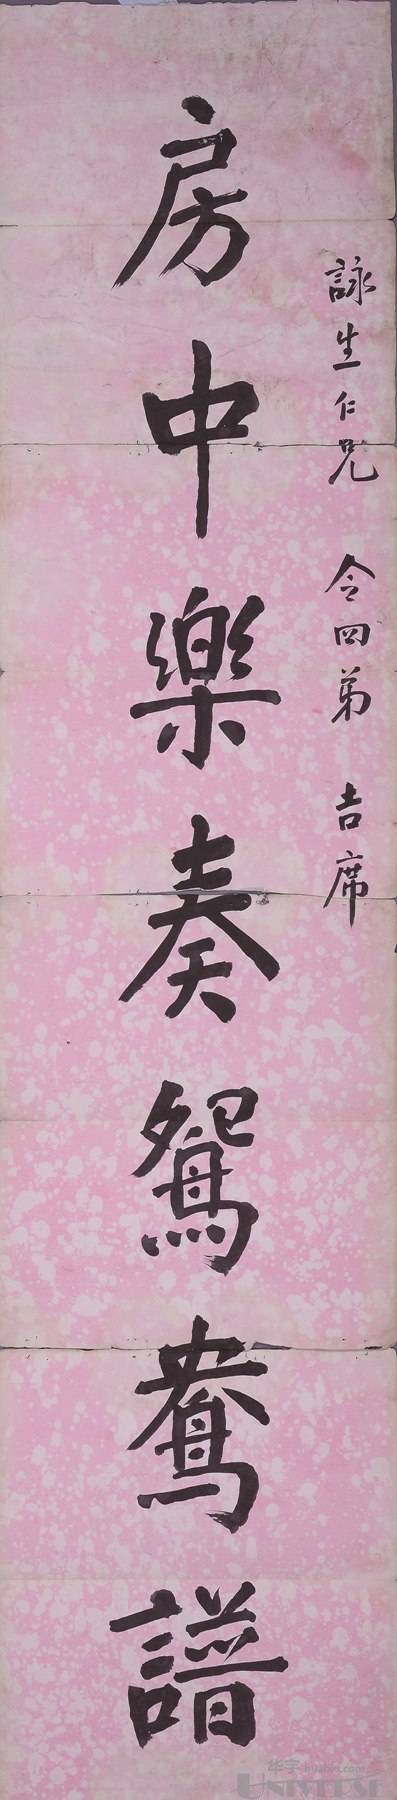 詠生仁兄 令四弟 吉席
房中樂奏鴛鴦譜
华宇 huabid.com
UNIVERSE